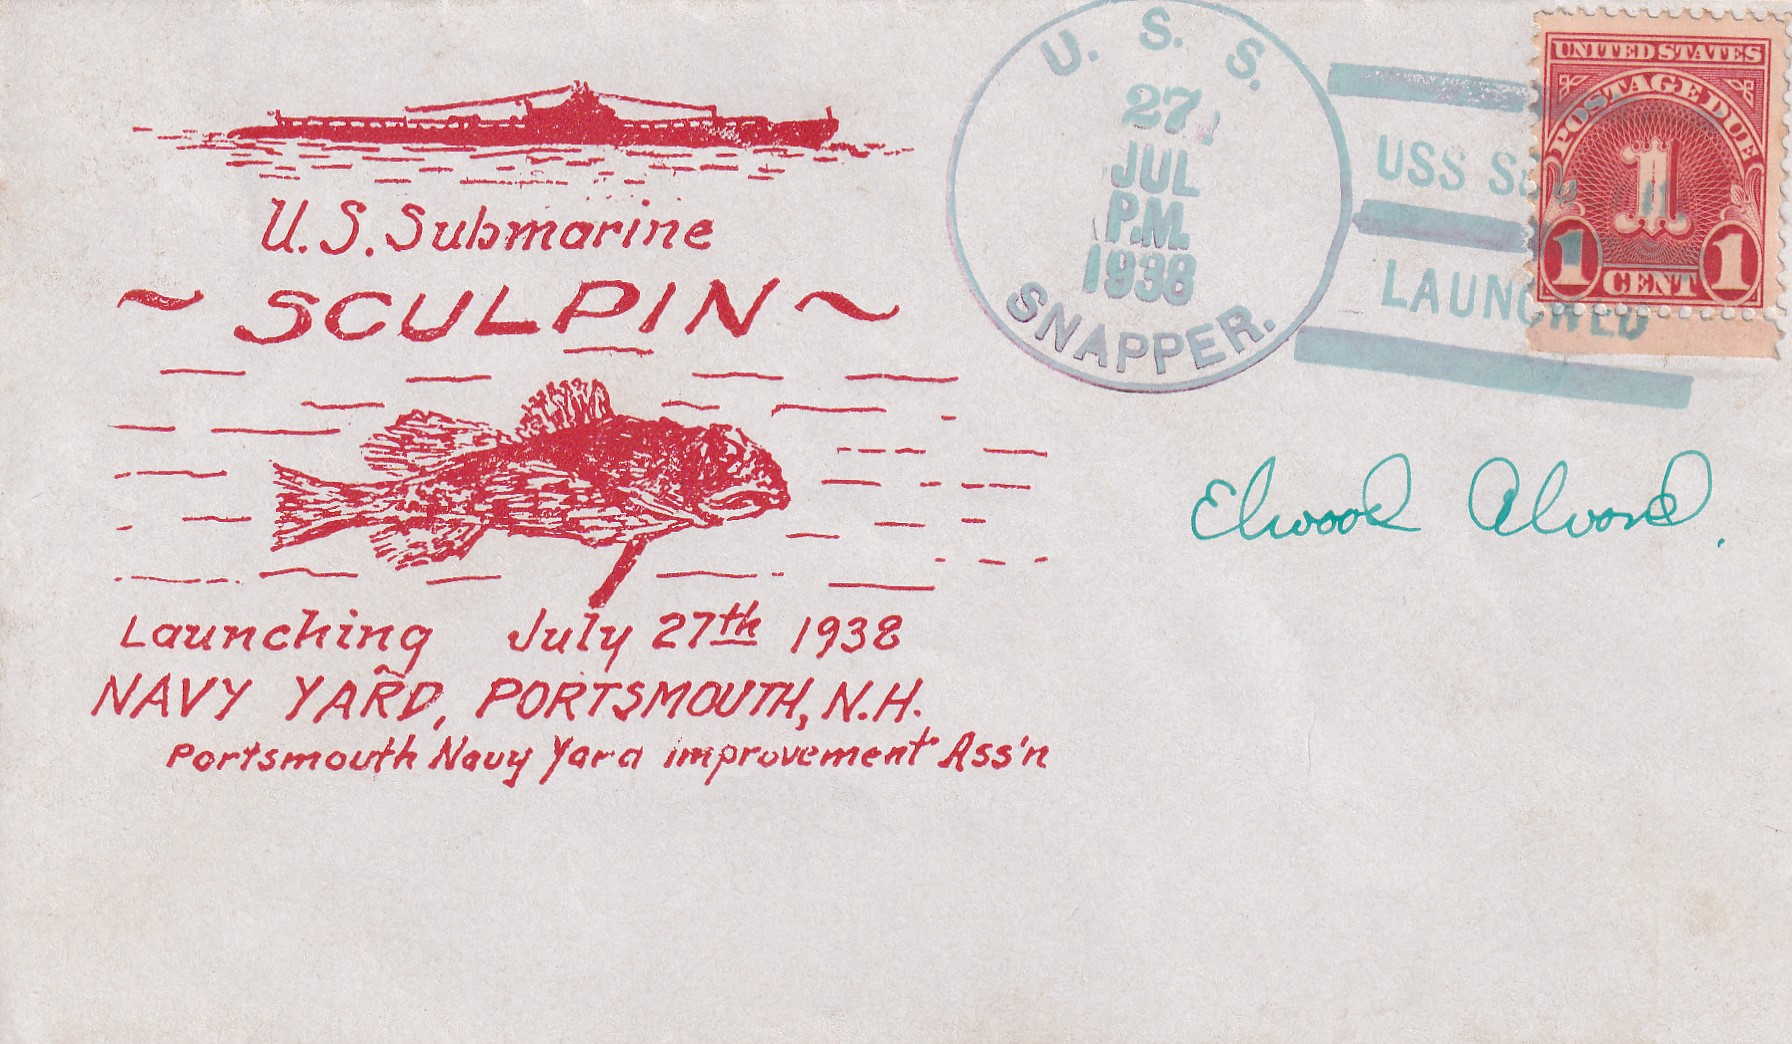 U.S. Submarine
~ SCULPIN ~
Launching July 27th 1938
NAVY YARD, PORTSMOUTH, N.H.
Portsmouth Navy Yard improvement Ass'n
U. S. S.
27
JUL
P.M.
1938
SNAPPER.
USS
LAUNCHED
UNITED STATES
POSTAGE DUE
1
1 CENT 1
Elwood Alvord.